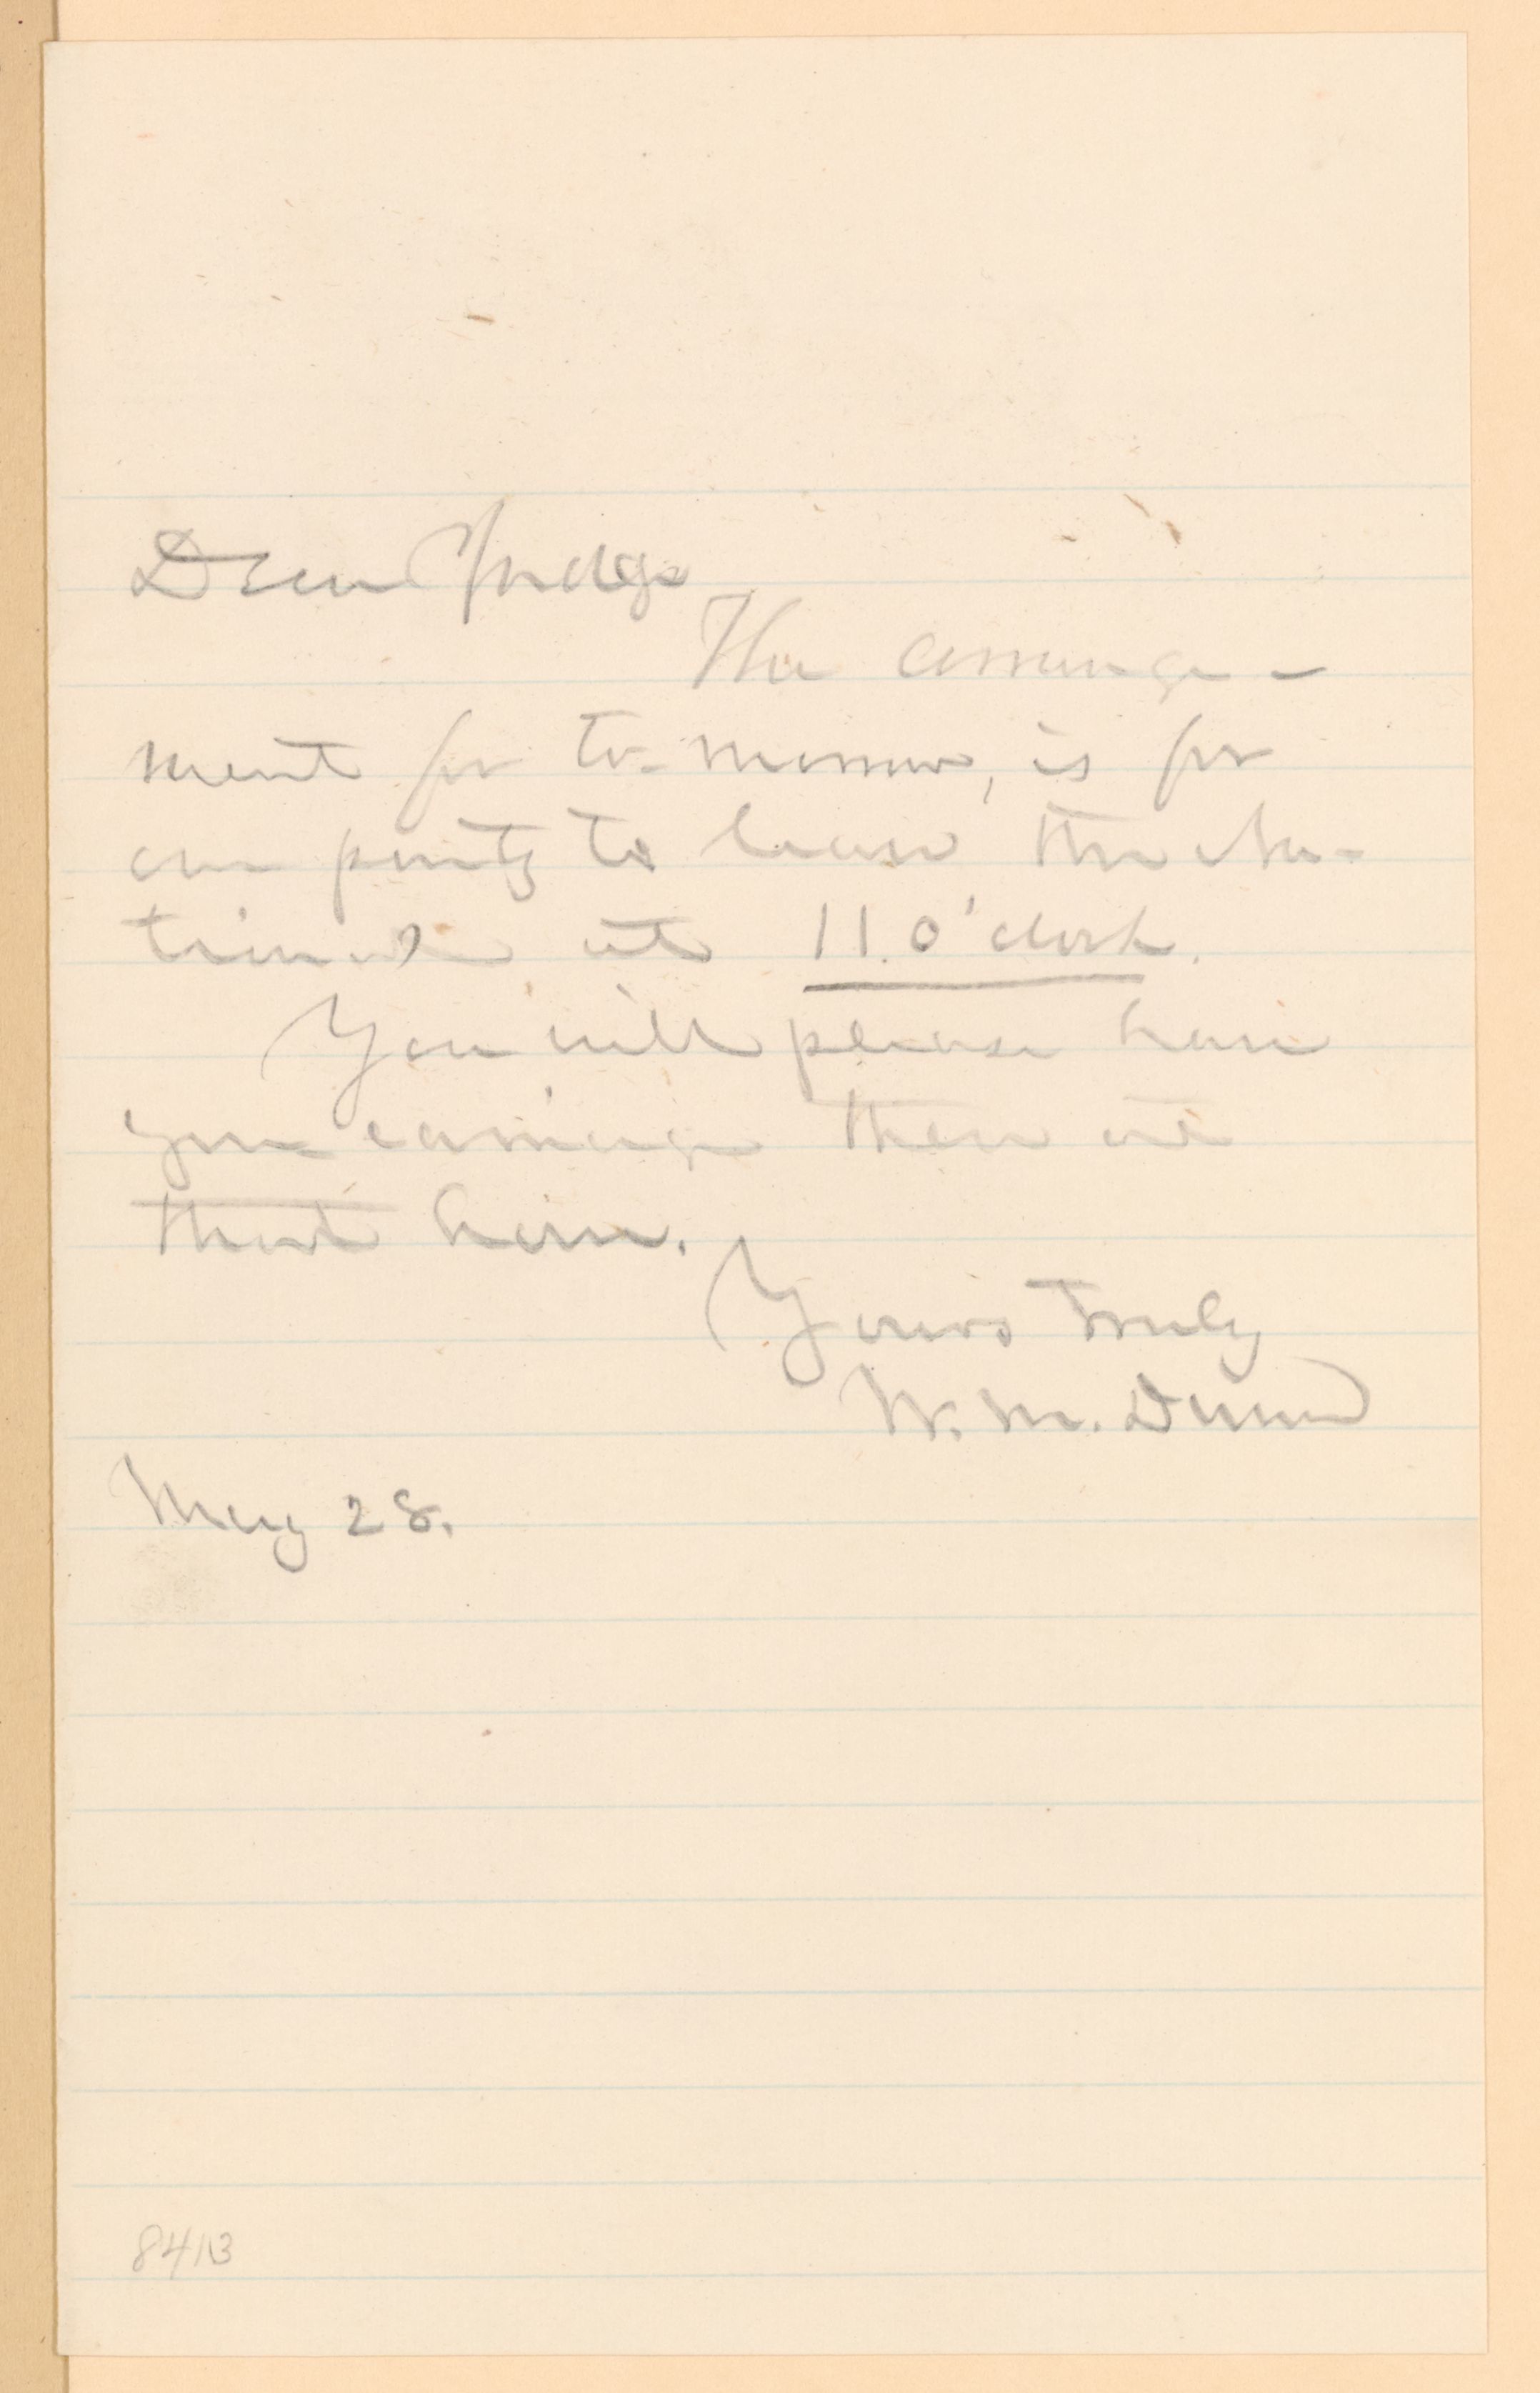 Dear Judge
The arrange-
ment for to-morrow, is for
our party to leave the
at 11. o'clock.
You will please have
your carriage there at
that hour.
Yours truly
W. M. Dunn
May 28.
8413